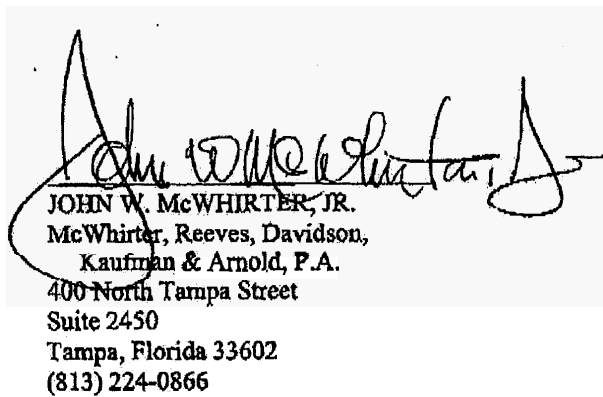 John W McWhirter, Jr
JOHN W. McWHIRTER, JR.
McWhirter, Reeves, Davidson,
Kaufman & Arnold, P.A.
400 North Tampa Street
Suite 2450
Tampa, Florida 33602
(813) 224-0866